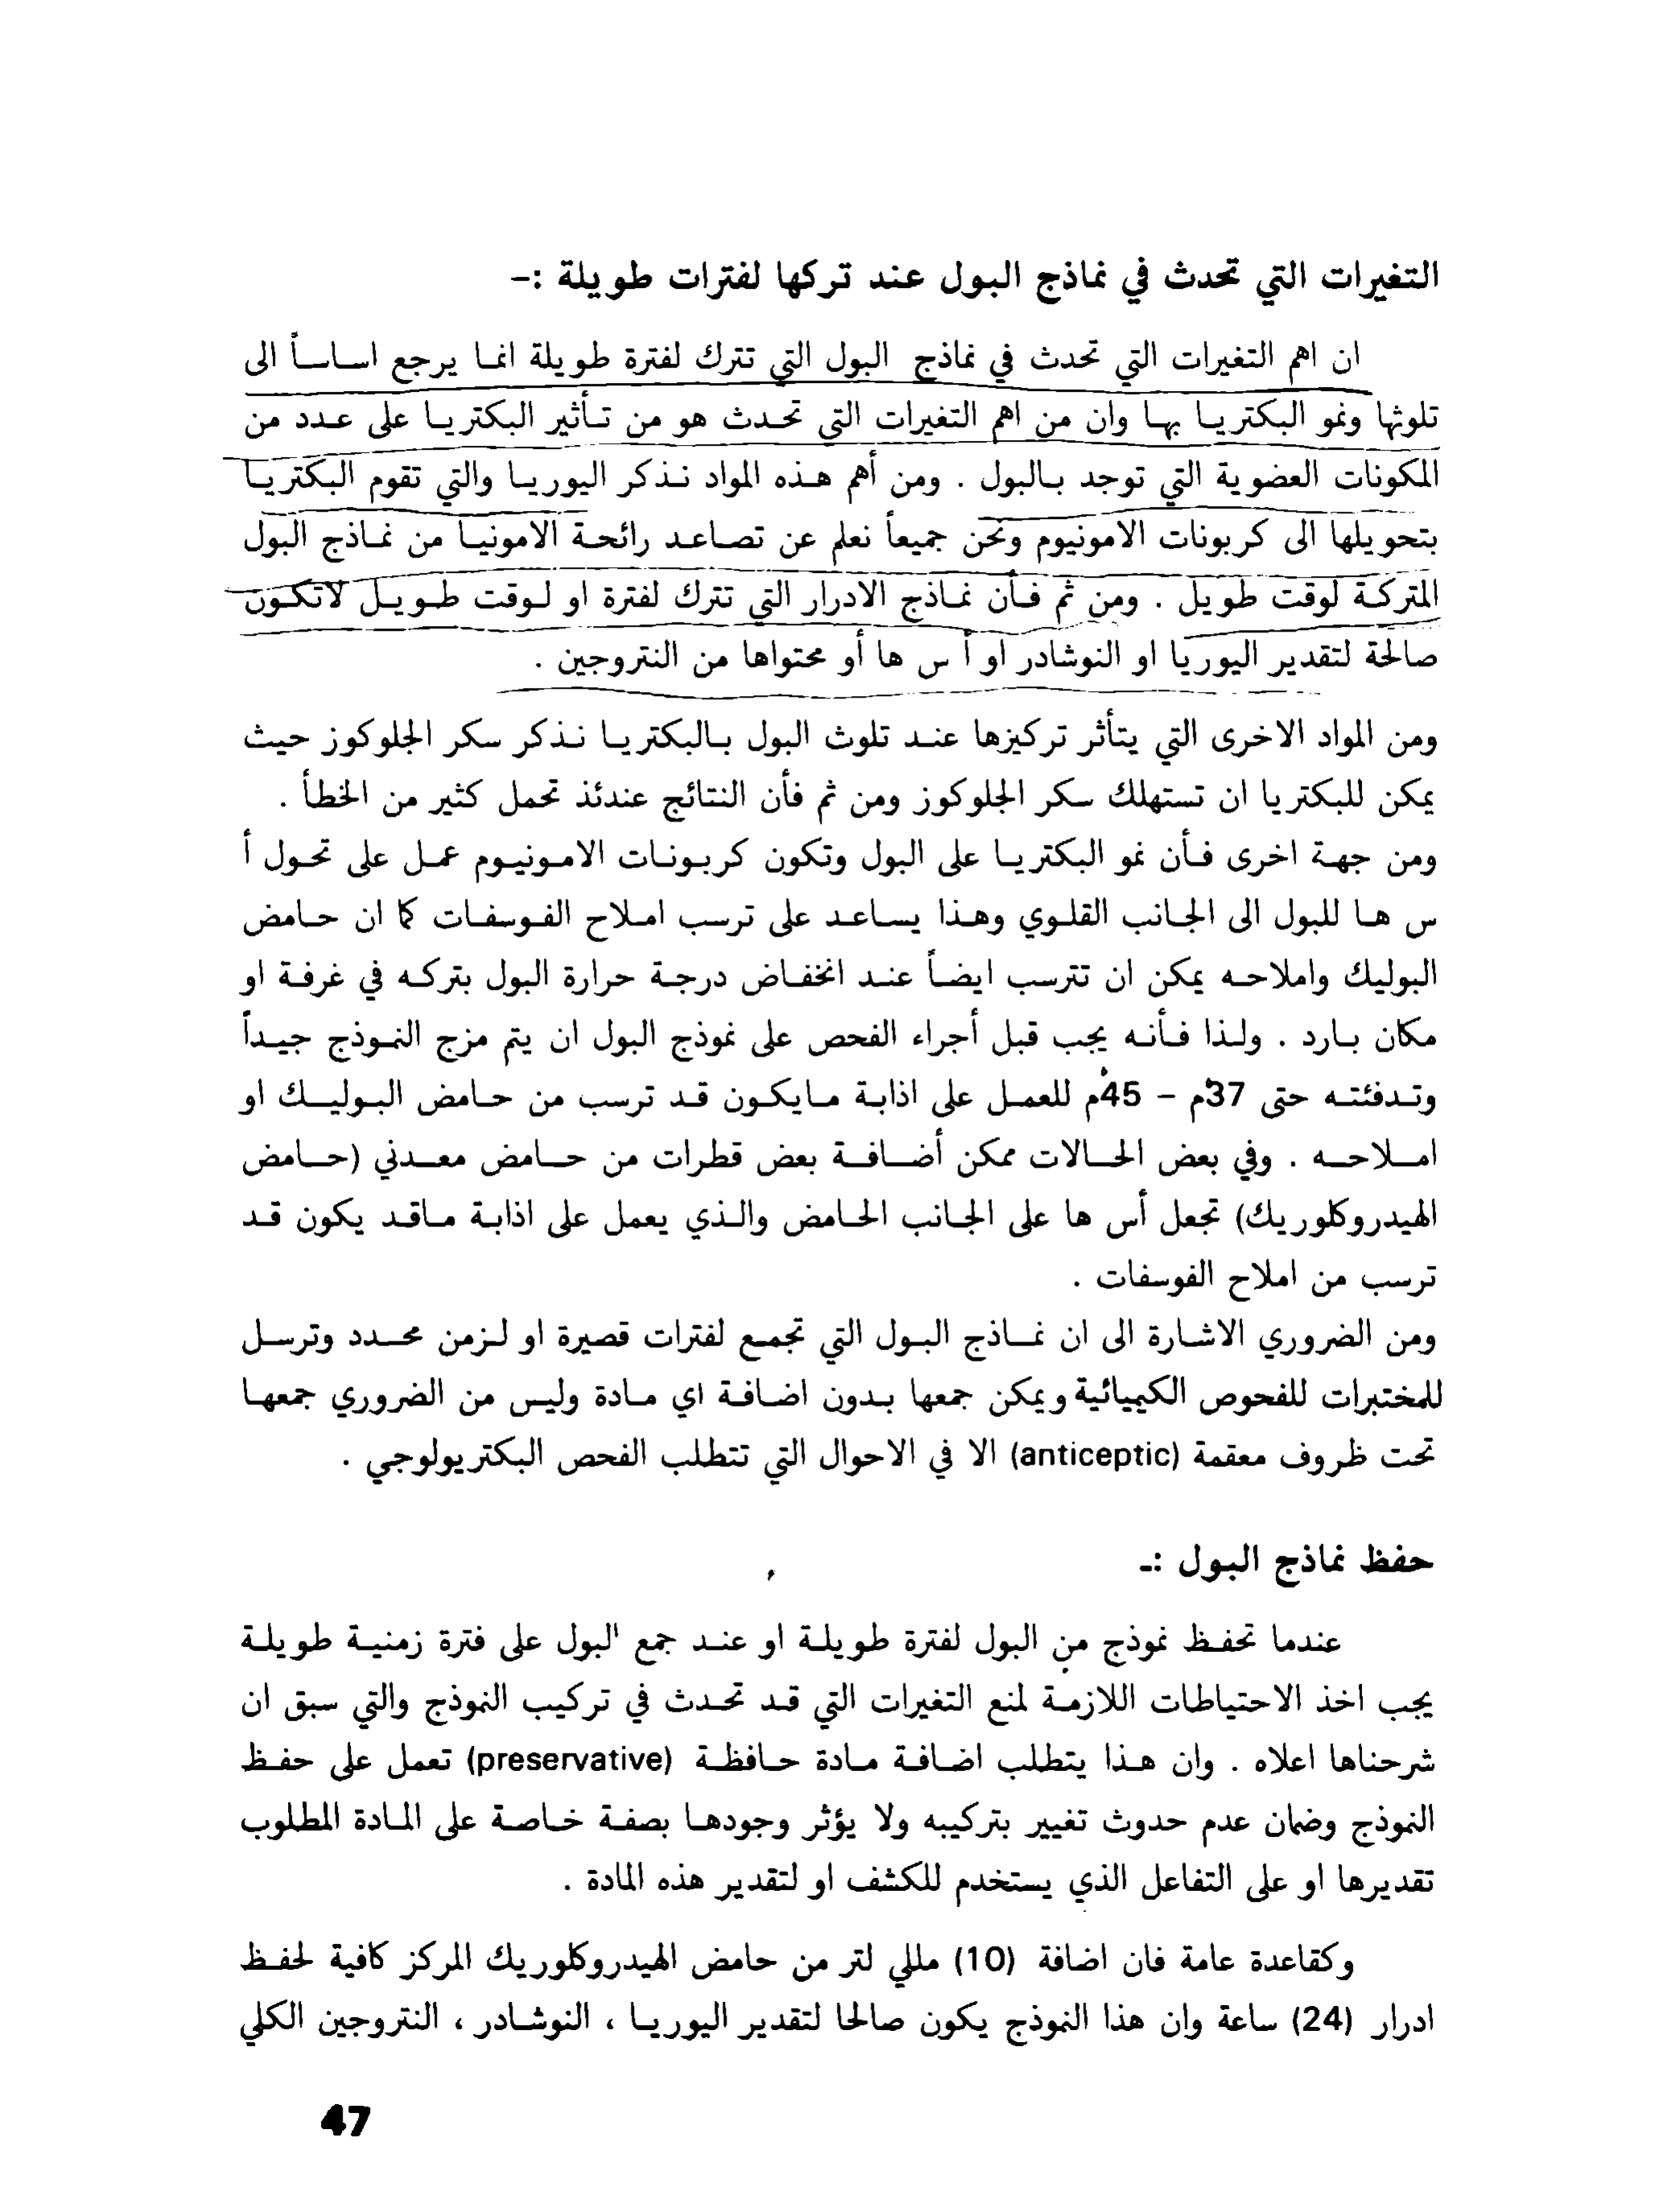 التغيرات التي تحدث في نماذج البول عند تركها لفترات طويلة :-
ان اهم التغيرات التي تحدث في نماذج البول التي تترك لفترة طويلة انما يرجع اساساً الى
تلوثها ونمو البكتريا بها وان من اهم التغيرات التي تحدث هو من تأثير البكتريا على عدد من
المكونات العضوية التي توجد بالبول . ومن أهم هذه المواد نذكر اليوريا والتي تقوم البكتريا
بتحويلها الى كربونات الامونيوم ونحن جميعاً نعلم عن تصاعد رائحة الامونيا من نماذج البول
المتركة لوقت طويل . ومن ثم فأن نماذج الادرار التي تترك لفترة او لوقت طويل لاتكون
صالحة لتقدير اليوريا او النوشادر او أ س ها أو محتواها من النتروجين .
ومن المواد الاخرى التي يتأثر تركيزها عند تلوث البول بالبكتريا نذكر سكر الجلوكوز حيث
يمكن للبكتريا ان تستهلك سكر الجلوكوز ومن ثم فأن النتائج عندئذ تحمل كثير من الخطأ .
ومن جهة اخرى فأن نمو البكتريا على البول وتكون كربونات الامونيوم عمل على تحول أ
س ها للبول الى الجانب القلوي وهذا يساعد على ترسب املاح الفوسفات كما ان حامض
البوليك واملاحه يمكن ان تترسب ايضاً عند انخفاض درجة حرارة البول بتركه في غرفة او
مكان بارد . ولذا فأنه يجب قبل أجراء الفحص على نموذج البول ان يتم مزج النموذج جيداً
وتدفئته حتى 37°م – 45°م للعمل على اذابة مايكون قد ترسب من حامض البوليك او
املاحه . وفي بعض الحالات ممكن أضافة بعض قطرات من حامض معدني (حامض
الهيدروكلوريك) تجعل أس ها على الجانب الحامض والذي يعمل على اذابة ماقد يكون قد
ترسب من املاح الفوسفات .
ومن الضروري الاشارة الى ان نماذج البول التي تجمع لفترات قصيرة او لزمن محدد وترسل
للمختبرات للفحوص الكيميائية ويمكن جمعها بدون اضافة اي مادة وليس من الضروري جمعها
تحت ظروف معقمة (anticeptic) الا في الاحوال التي تتطلب الفحص البكتريولوجي .
حفظ نماذج البول :ـ
عندما تحفظ نموذج من البول لفترة طويلة او عند جمع البول على فترة زمنية طويلة
يجب اخذ الاحتياطات اللازمة لمنع التغيرات التي قد تحدث في تركيب النموذج والتي سبق ان
شرحناها اعلاه . وان هذا يتطلب اضافة مادة حافظة (preservative) تعمل على حفظ
النموذج وضمان عدم حدوث تغيير بتركيبه ولا يؤثر وجودها بصفة خاصة على المادة المطلوب
تقديرها او على التفاعل الذي يستخدم للكشف او لتقدير هذه المادة .
وكقاعدة عامة فان اضافة (10) مللي لتر من حامض الهيدروكلوريك المركز كافية لحفظ
ادرار (24) ساعة وان هذا النموذج يكون صالحا لتقدير اليوريا ، النوشادر ، النتروجين الكلي
47